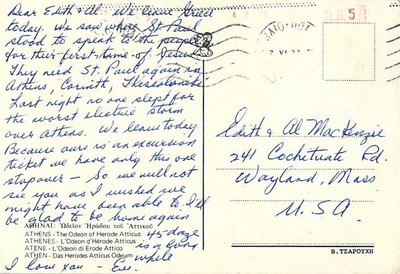 Dear Edith & Al. We leave Greece
today. We saw where St Paul
stood to speak to the people
for their first time of Jesus.
They need St. Paul again in
Athens, Corinth, Thessaloniki
Last night no one slept for
the worst electric storm
over Athens. We leave today.
Because ours is an excursion
ticket we have only this one
stopover - So we will not
see you as I wished we
might have been able to. I'll
be glad to be home again
45 days
is a good
while
I love you - Ew.
Edith & Al MacKenzie
241 Cochituate Rd.
Wayland, Mass
U.S.A.
ΑΘΗΝΑΙ: Ὠδεῖον Ἡρώδου τοῦ Ἀττικοῦ
ATHENS - The Odeon of Herode Atticus
ATHENES - L'Odeon d'Hérode Atticus
ATENE - L'Odeon di Erode Attico
ATHEN - Das Herodes Atticus Odeum
Β. ΤΣΑΡΟΥΧΗ